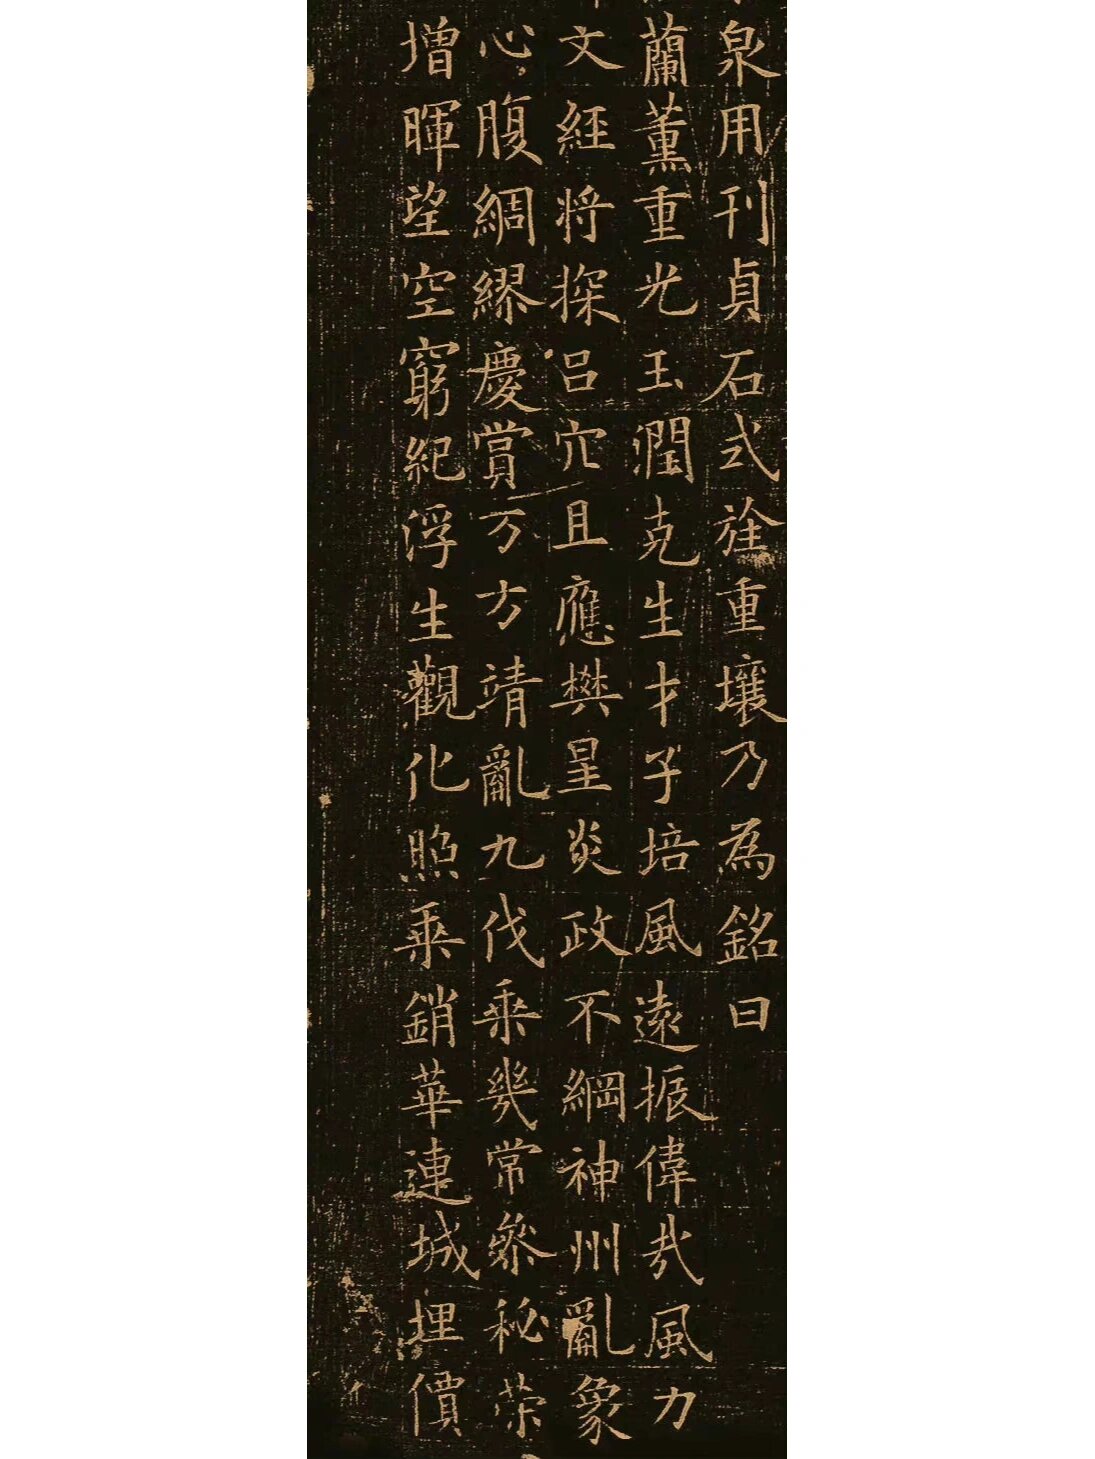 泉用刊貞石式旌重壤乃為銘曰
蘭薰重光玉潤克生才子培風遠振偉哉風力
文經將探呂穴且應樊星炎政不綱神州亂象
心腹綢繆慶賞万方靖亂九伐乘幾常參秘策
增暉望空窮紀浮生觀化照乘銷華連城埋價